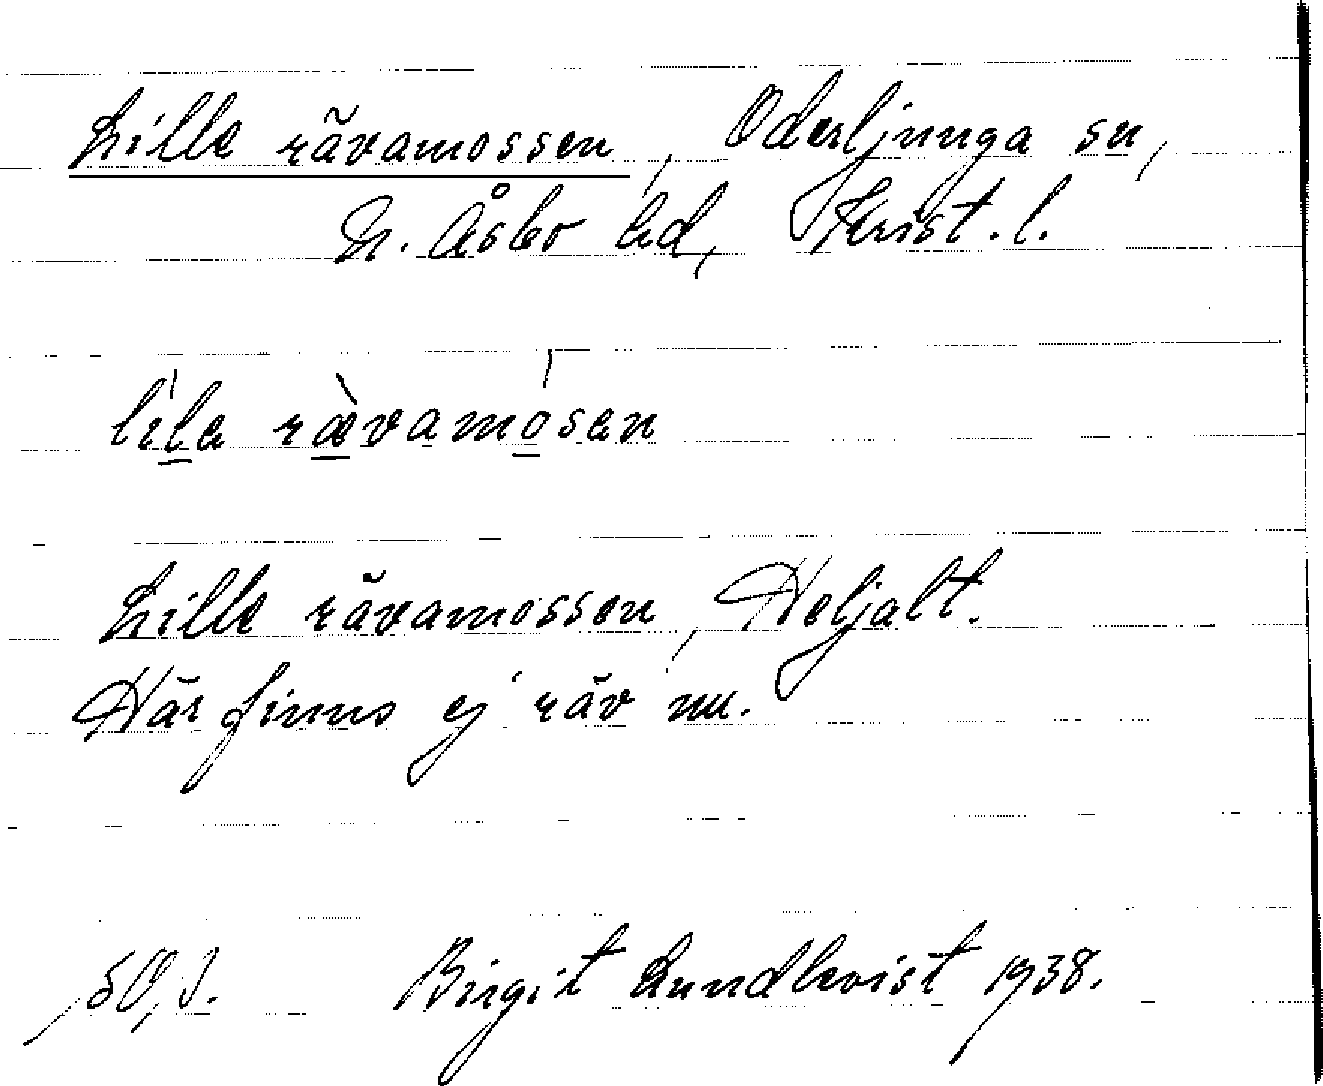 Lille rävamossen, Oderljunga sn,
N. Åsbo hd, Krist. l.
lìla rævamósen
Lille rävamossen, Heljalt.
Här finns ej räv nu.
Birgit Lundkvist 1938.